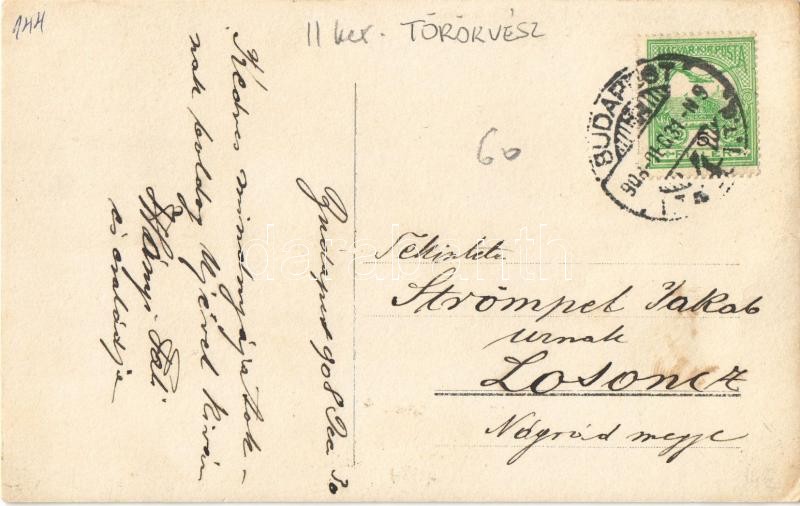 144
II ker. TÖRÖKVÉSZ
60
MAGYAR KIR. POSTA
BUDAPEST
908
Budapest 908 Dec 30
Kedves mindnyájatok-
nak boldog Ujévet kiván
Pali
és családja
Tekintetes
Strömpel Jakab
urnak
Losoncz
Nógrád megye
darabanth